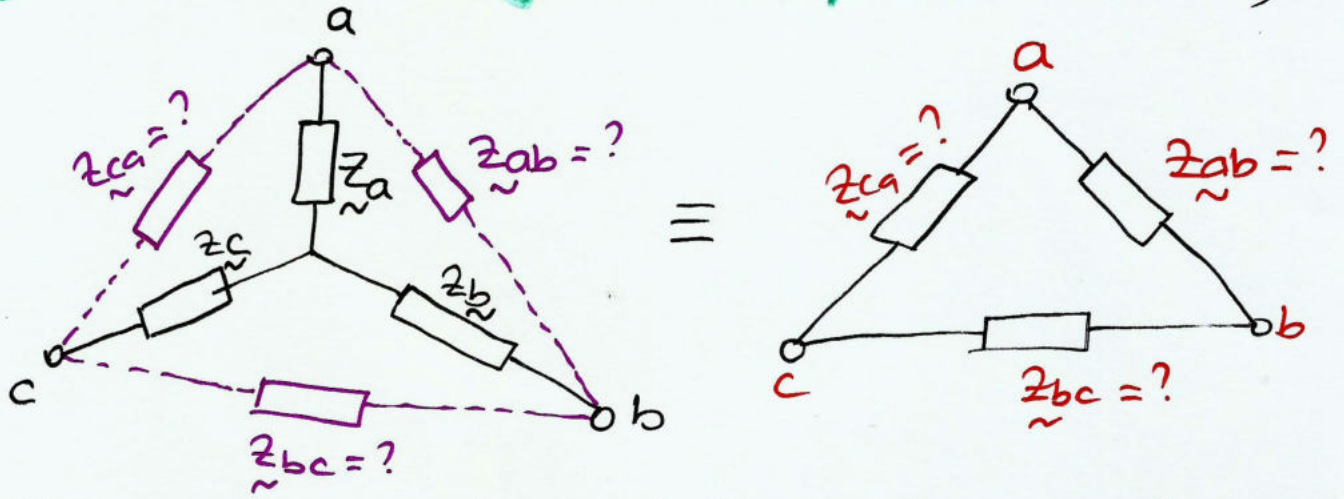 a
zca = ?
za
zab = ?
zc
zb
c
b
zbc = ?
≡
a
zca = ?
zab = ?
c
b
zbc = ?